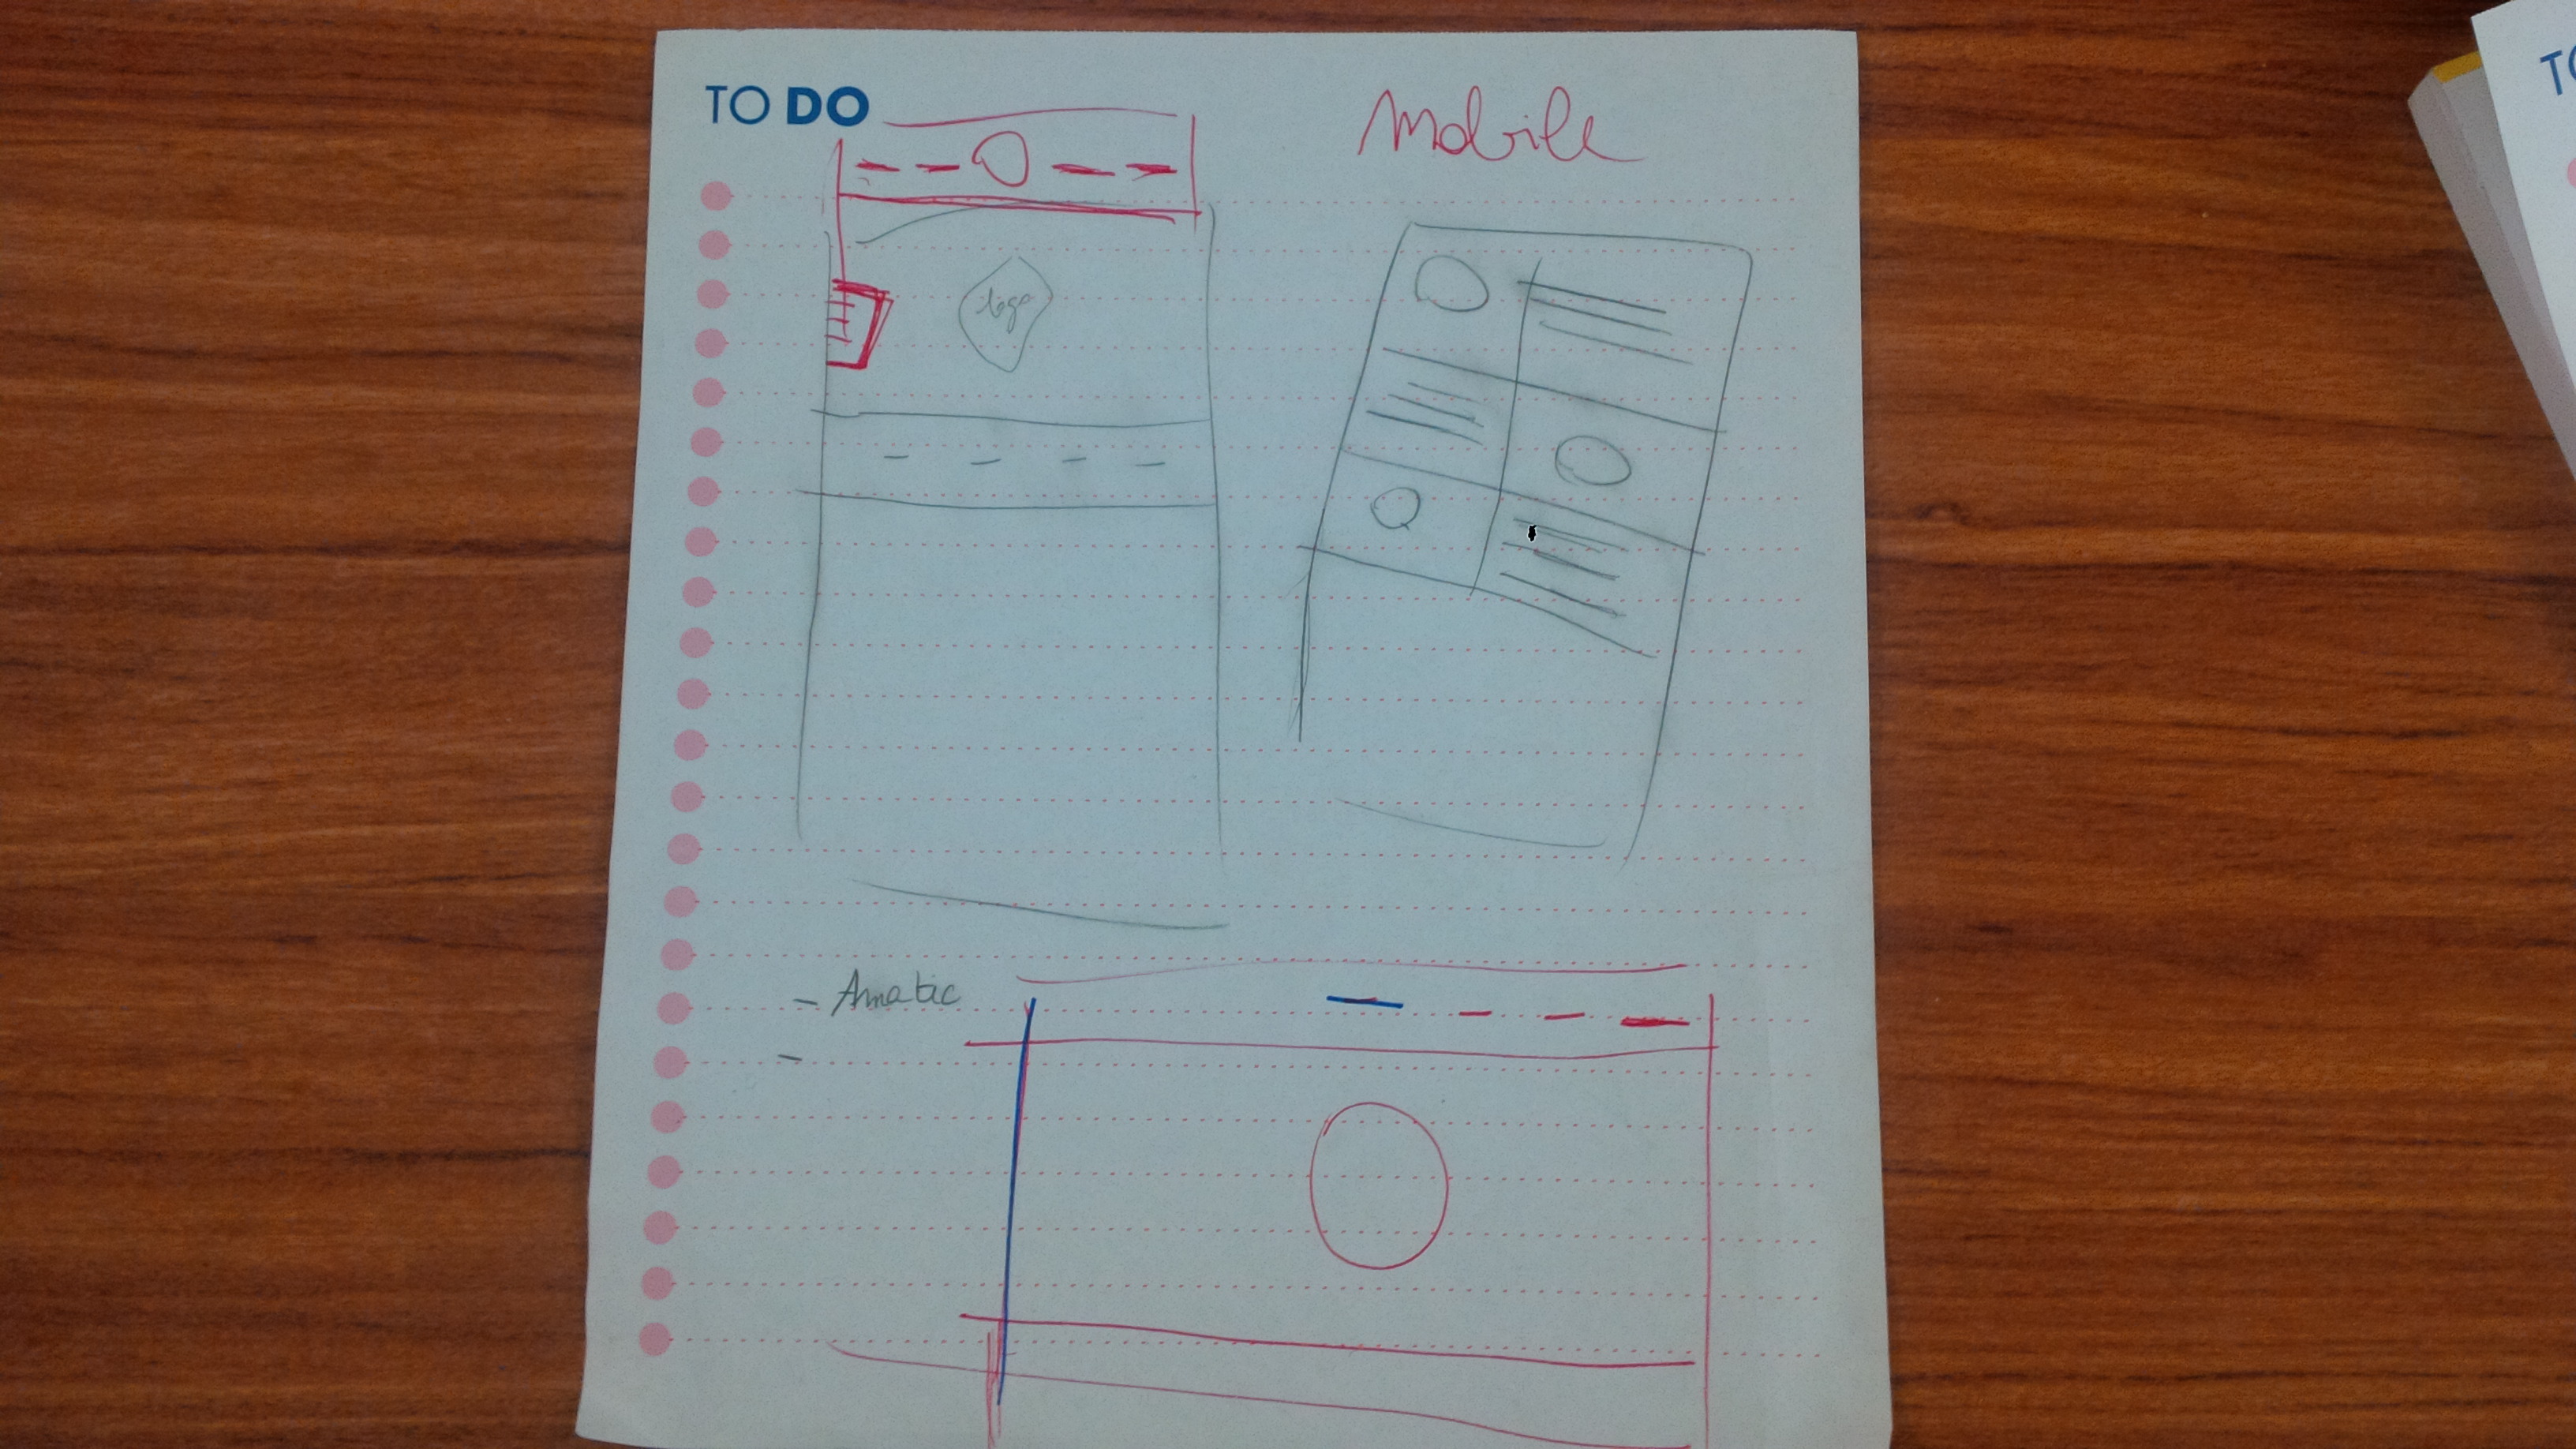 TO DO
mobile
logo
- Amatic
-
TO